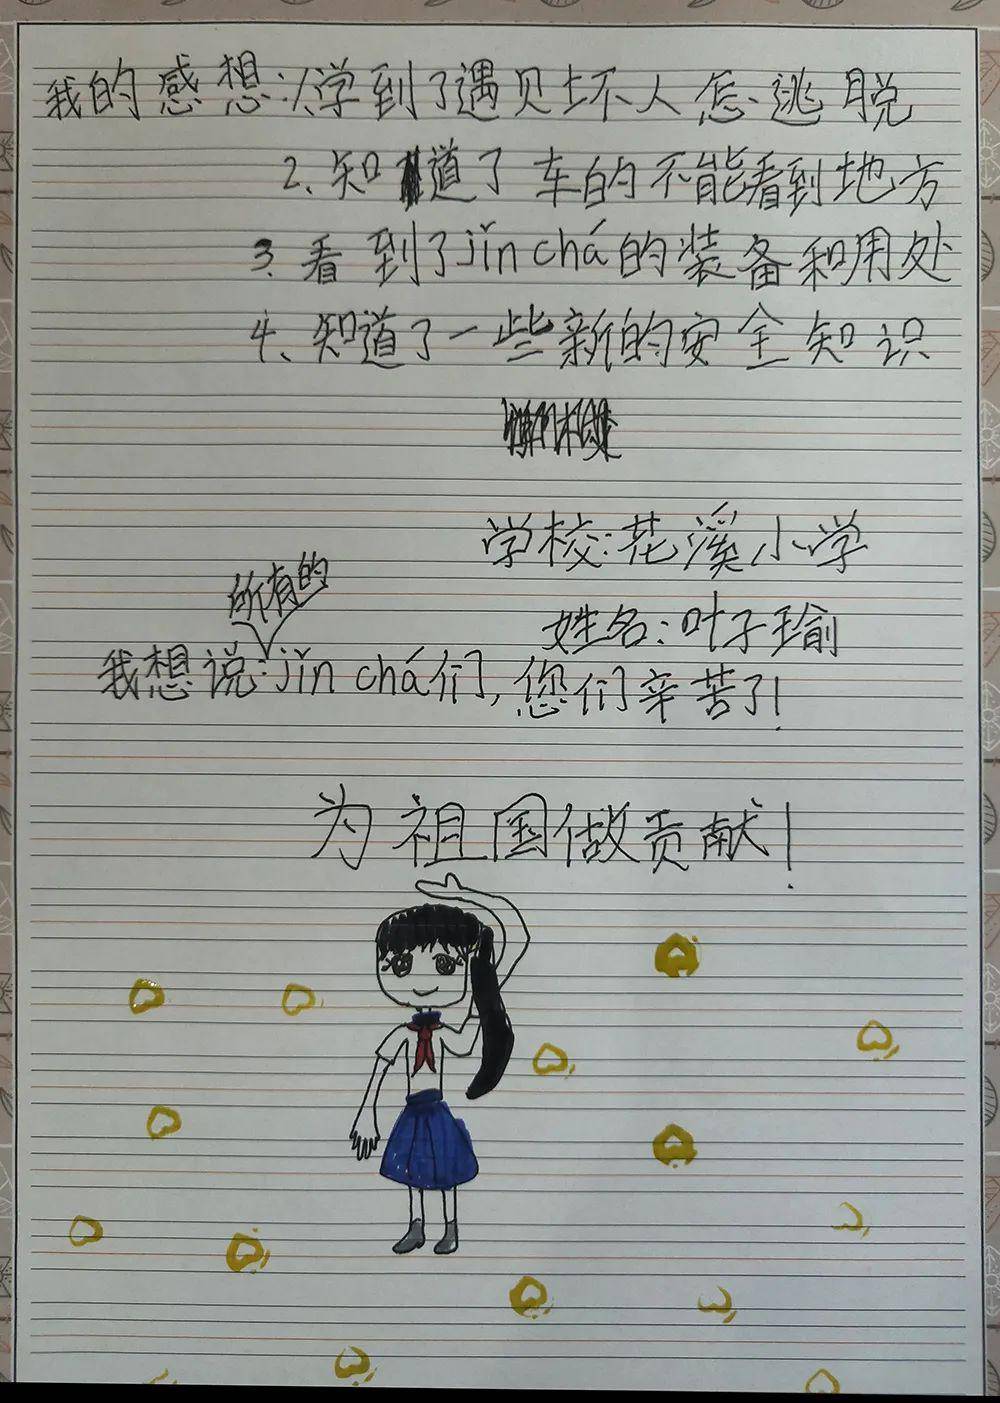 我的感想:1、学到了遇见坏人怎逃脱
2、知道了车的不能看到地方
3、看到了jǐn chá的装备和用处
4、知道了一些新的安全知识
学校:花溪小学
姓名:叶子瑜
所有的
我想说:jǐn chá们,您们辛苦了!
为祖国做贡献!